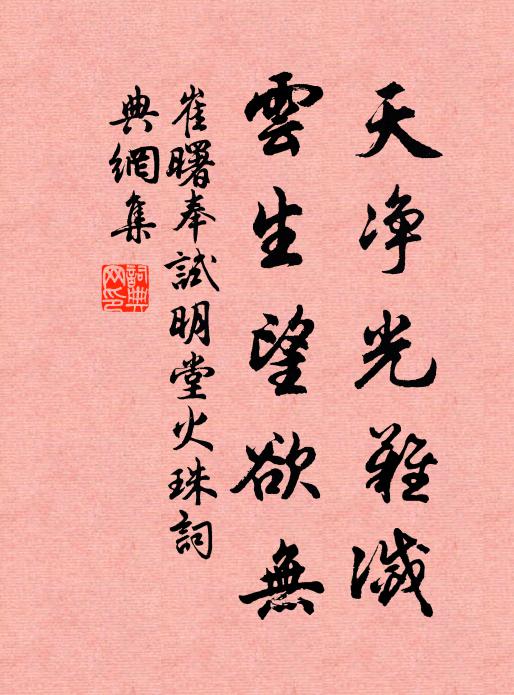 天净光難滅
雲生望欲無
崔曙奉試明堂火珠詞
典網集
詞典
网印